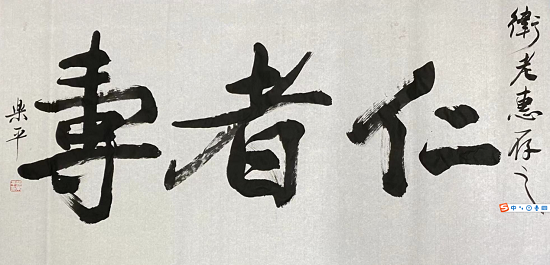 衛老惠存之
仁者寿
樂平
中